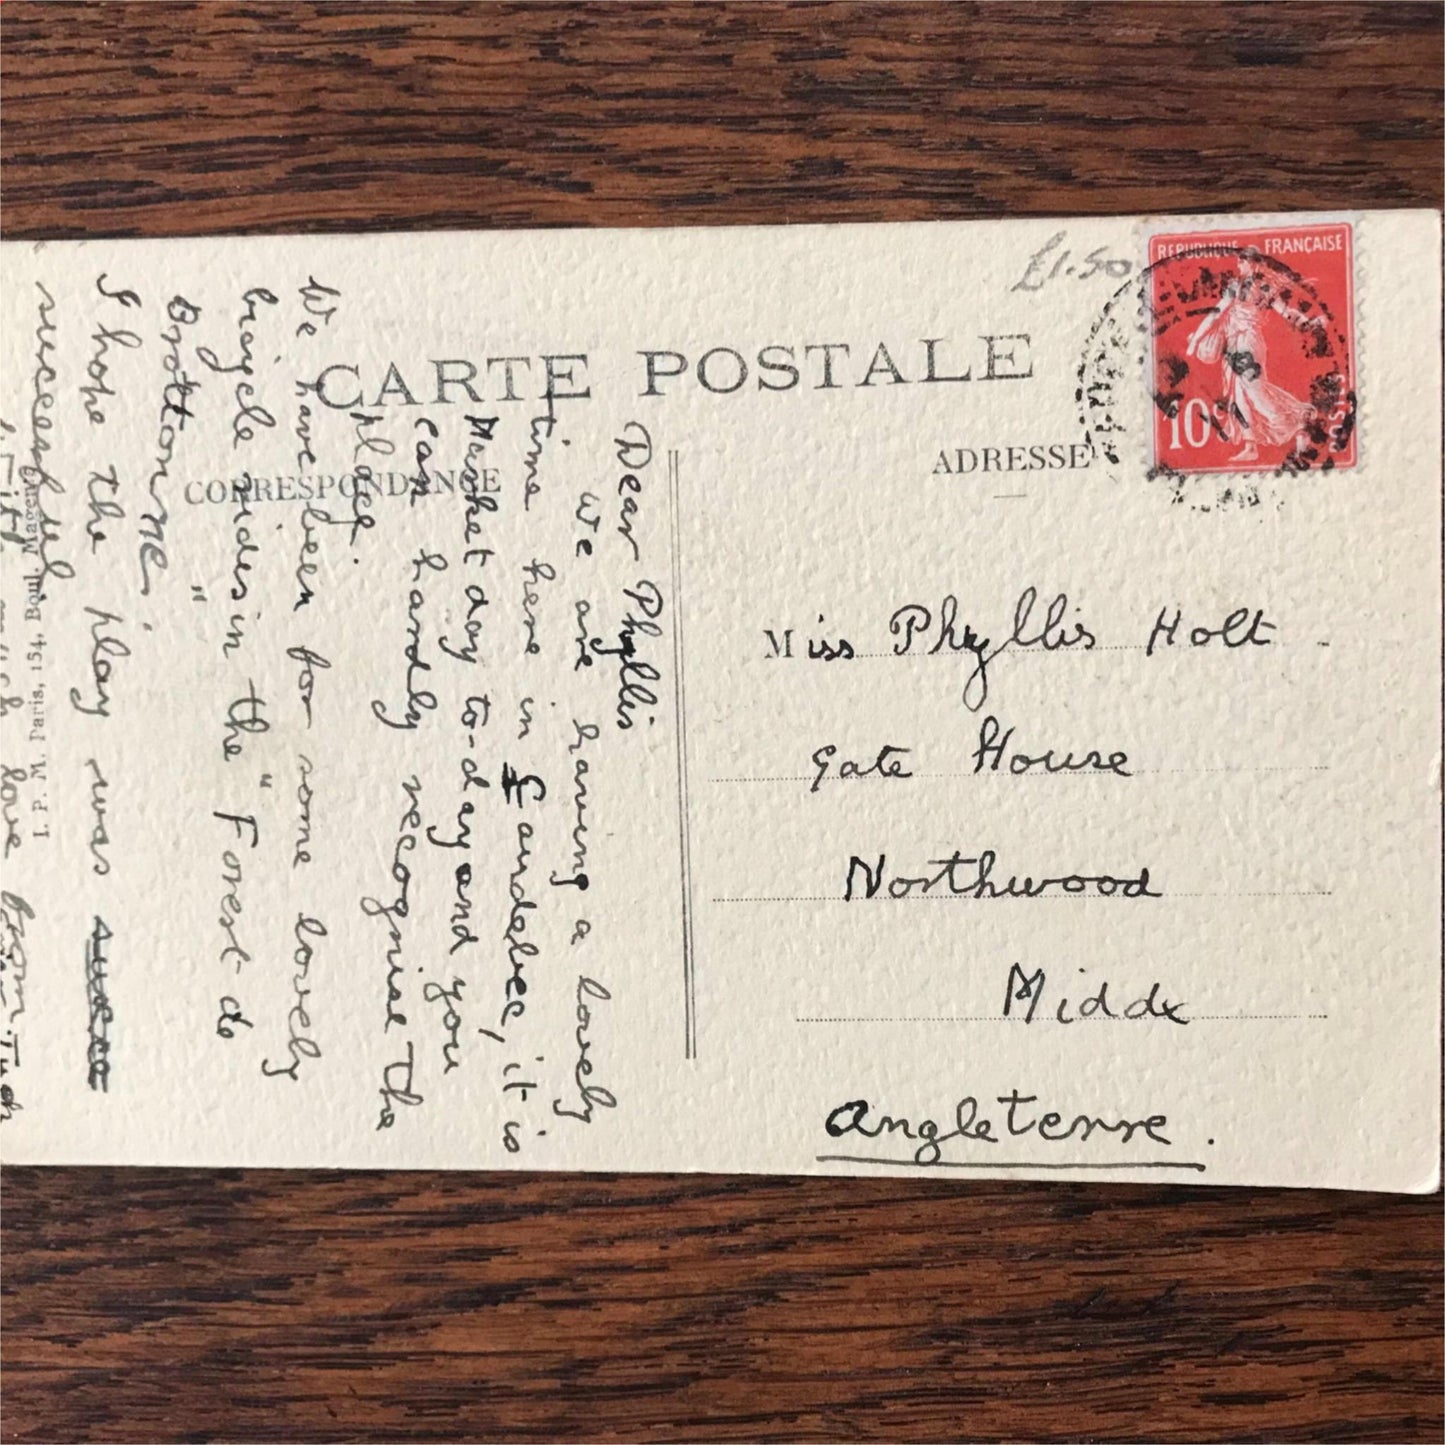 £1.50
REPUBLIQUE FRANÇAISE
10c
CARTE POSTALE
CORRESPONDANCE
ADRESSE
Miss Phyllis Holt -
Gate House
Northwood
Middx
Angleterre.
Dear Phyllis
We are having a lovely
time here in Caudebec, it is
Market day to-day and you
can hardly recognise the
place.
We have been for some lovely
bicycle rides in the "Forest de
Brottonne"
I hope the play was
successful.
much love from
I. P. M. Paris, 154, Boul. Magenta